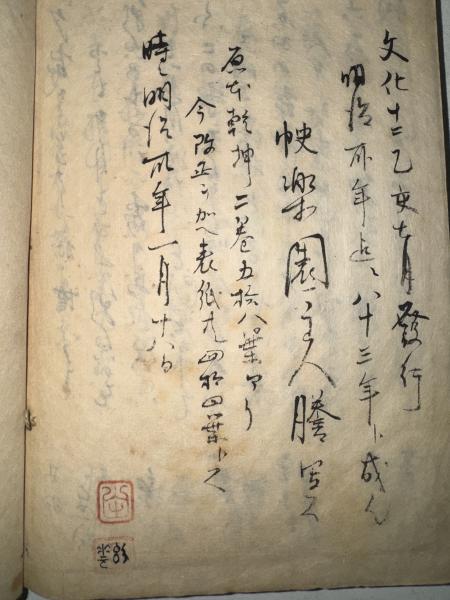 文化十二乙亥七月發行
明治卅年迠ハ八十三年ト成ル
快楽園主人謄写ス
原本乾坤二巻五拾八葉アリ
今改正ヲ加ヘ表紙共四拾四葉トス
時明治卅年一月十八日